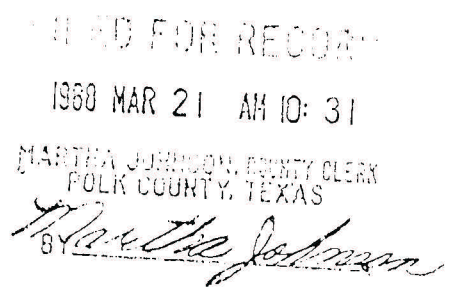 FILED FOR RECORD
1968 MAR 21 AM 10: 31
MARTHA JOHNSON, COUNTY CLERK
POLK COUNTY, TEXAS
BY Martha Johnson